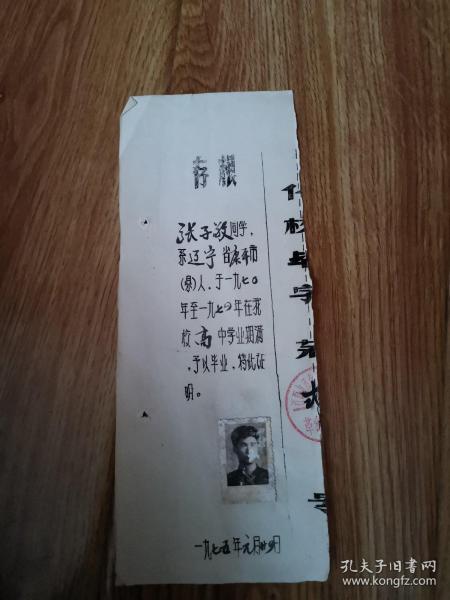 存根
张子敬同学，
系辽宁省康平市
(县)人，于一九七〇
年至一九七四年在我
校高中学业期满
，予以毕业，特此证
明。
一九七五年元月廿四日
毕字
号
孔夫子旧书网
www.kongfz.com